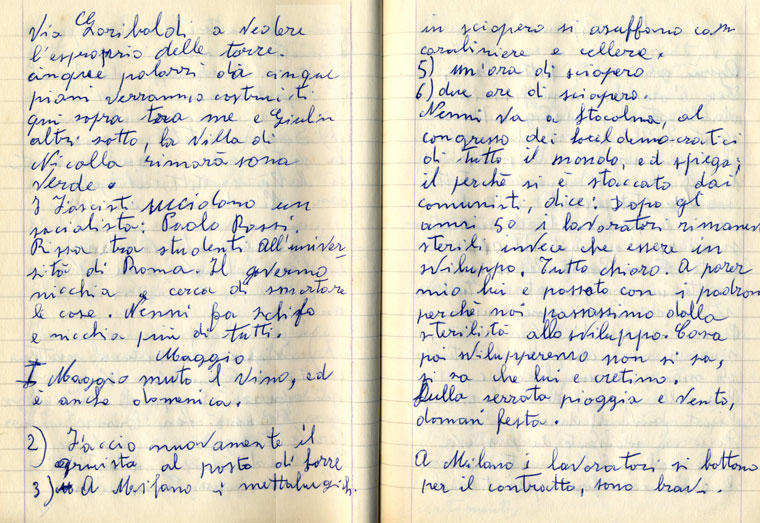 Via Garibaldi a vedere
l'esproprio delle terre.
cinque palazzi da cinque
piani verranno costruiti
qui sopra tra me e Giulin
altri sotto, la villa di
Nicolla rimarà zona
verde.
I Fascisti uccidono un
socialista: Paolo Rossi.
Rissa tra studenti All'univer-
sità di Roma. Il governo
nicchia e cerca di smortare
le cose. Nenni fa schifo
e nicchia più di tutti.
Maggio
I Maggio muto il vino, ed
è anche domenica.
2) Faccio nuovamente il
al posto di
3) A Milano i mettalurgich.
in sciopero si azuffano con
carabiniere e cellere.
5) un'ora di sciopero
6) due ore di sciopero.
Nenni va a Stocolma, al
congresso dei socialdemo-cratici
di tutto il mondo, ed spiega;
il perchè si è staccato dai
comunisti, dice: Dopo gl
anni 50 i lavoratori rimanev
sterili invece che essere in
sviluppo. Tutto chiaro. A parer
mio lui e passato con i padron
perchè noi passassimo dalla
sterilistà allo sviluppo. Cosa
poi svilupperemo non si sa,
si sa che lui e cretino.
Sulla serrata pioggia e vento,
domani festa.
A Milano i lavoratori si battono
per il contratto, sono bravi.